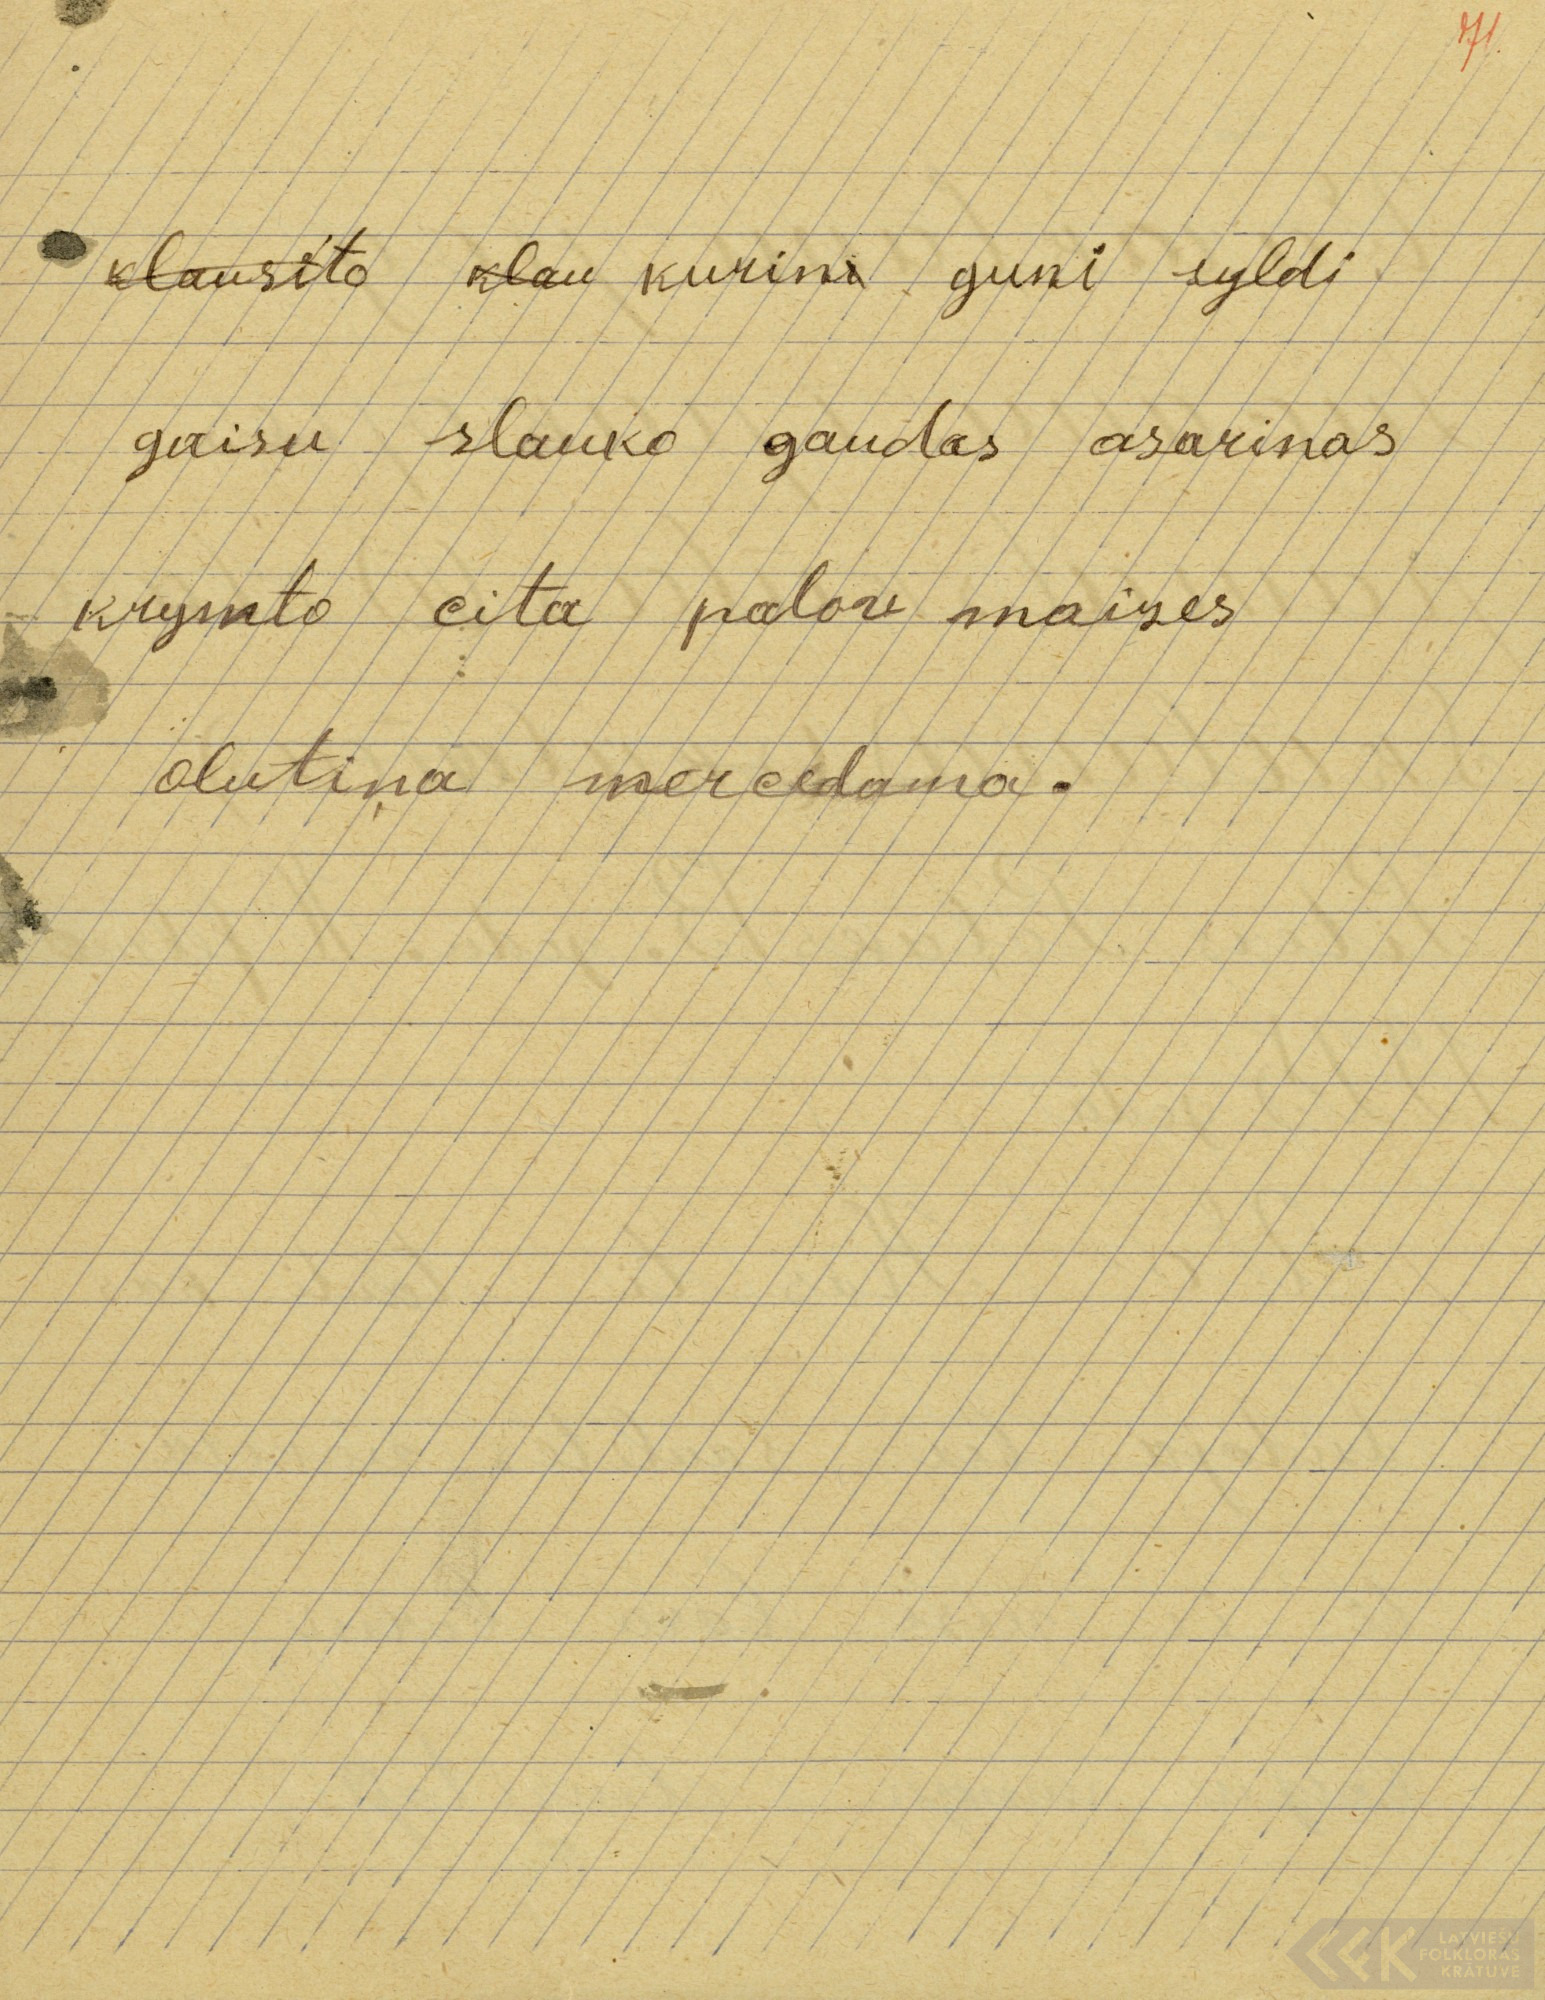 71.
klausito klau kurini guni syldi
gaisu slauko gaudas asarinas
krymto cita palou maizes
olutiņa mercedama.
LATVIEŠU
FOLKLORAS
KRĀTUVE